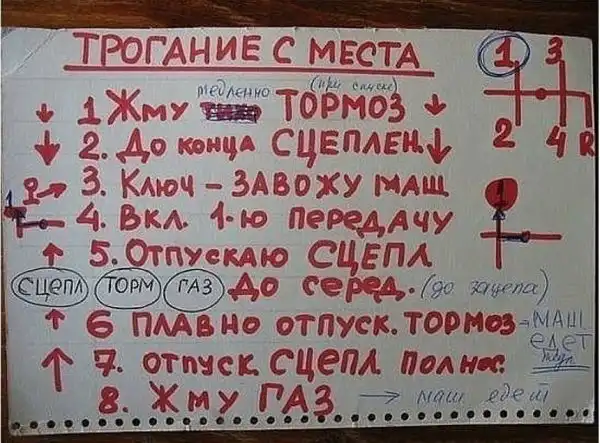 ТРОГАНИЕ С МЕСТА
1 3
2 4 R
медленно (при спуске)
1 Жму ТОРМОЗ
2. До конца СЦЕПЛЕН.
3. Ключ – ЗАВОЖУ МАШ
4. Вкл. 1-ю передачу
1
1
5. Отпускаю СЦЕПЛ
СЦЕПЛ ТОРМ ГАЗ До серед. (до зацепа)
6 ПЛАВНО отпуск. ТОРМОЗ - МАШ
едет
7. отпуск СЦЕПЛ полнос.
8. Жму ГАЗ → маш едет